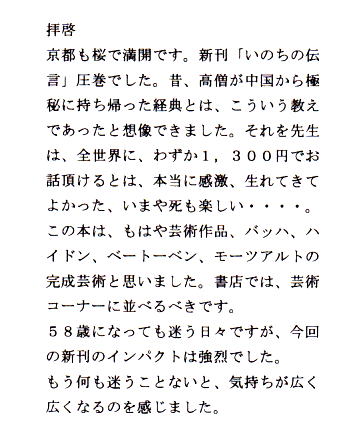 拝啓
京都も桜で満開です。新刊「いのちの伝
言」圧巻でした。昔、高僧が中国から極
秘に持ち帰った経典とは、こういう教え
であったと想像できました。それを先生
は、全世界に、わずか１，３００円でお
話頂けるとは、本当に感激、生れてきて
よかった、いまや死も楽しい・・・・。
この本は、もはや芸術作品、バッハ、ハ
イドン、ベートーベン、モーツアルトの
完成芸術と思いました。書店では、芸術
コーナーに並べるべきです。
５８歳になっても迷う日々ですが、今回
の新刊のインパクトは強烈でした。
もう何も迷うことないと、気持ちが広く
広くなるのを感じました。